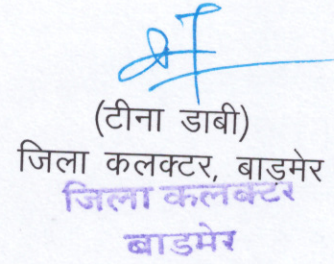 (टीना डाबी)
जिला कलक्टर, बाडमेर
जिला कलक्टर
बाडमेर